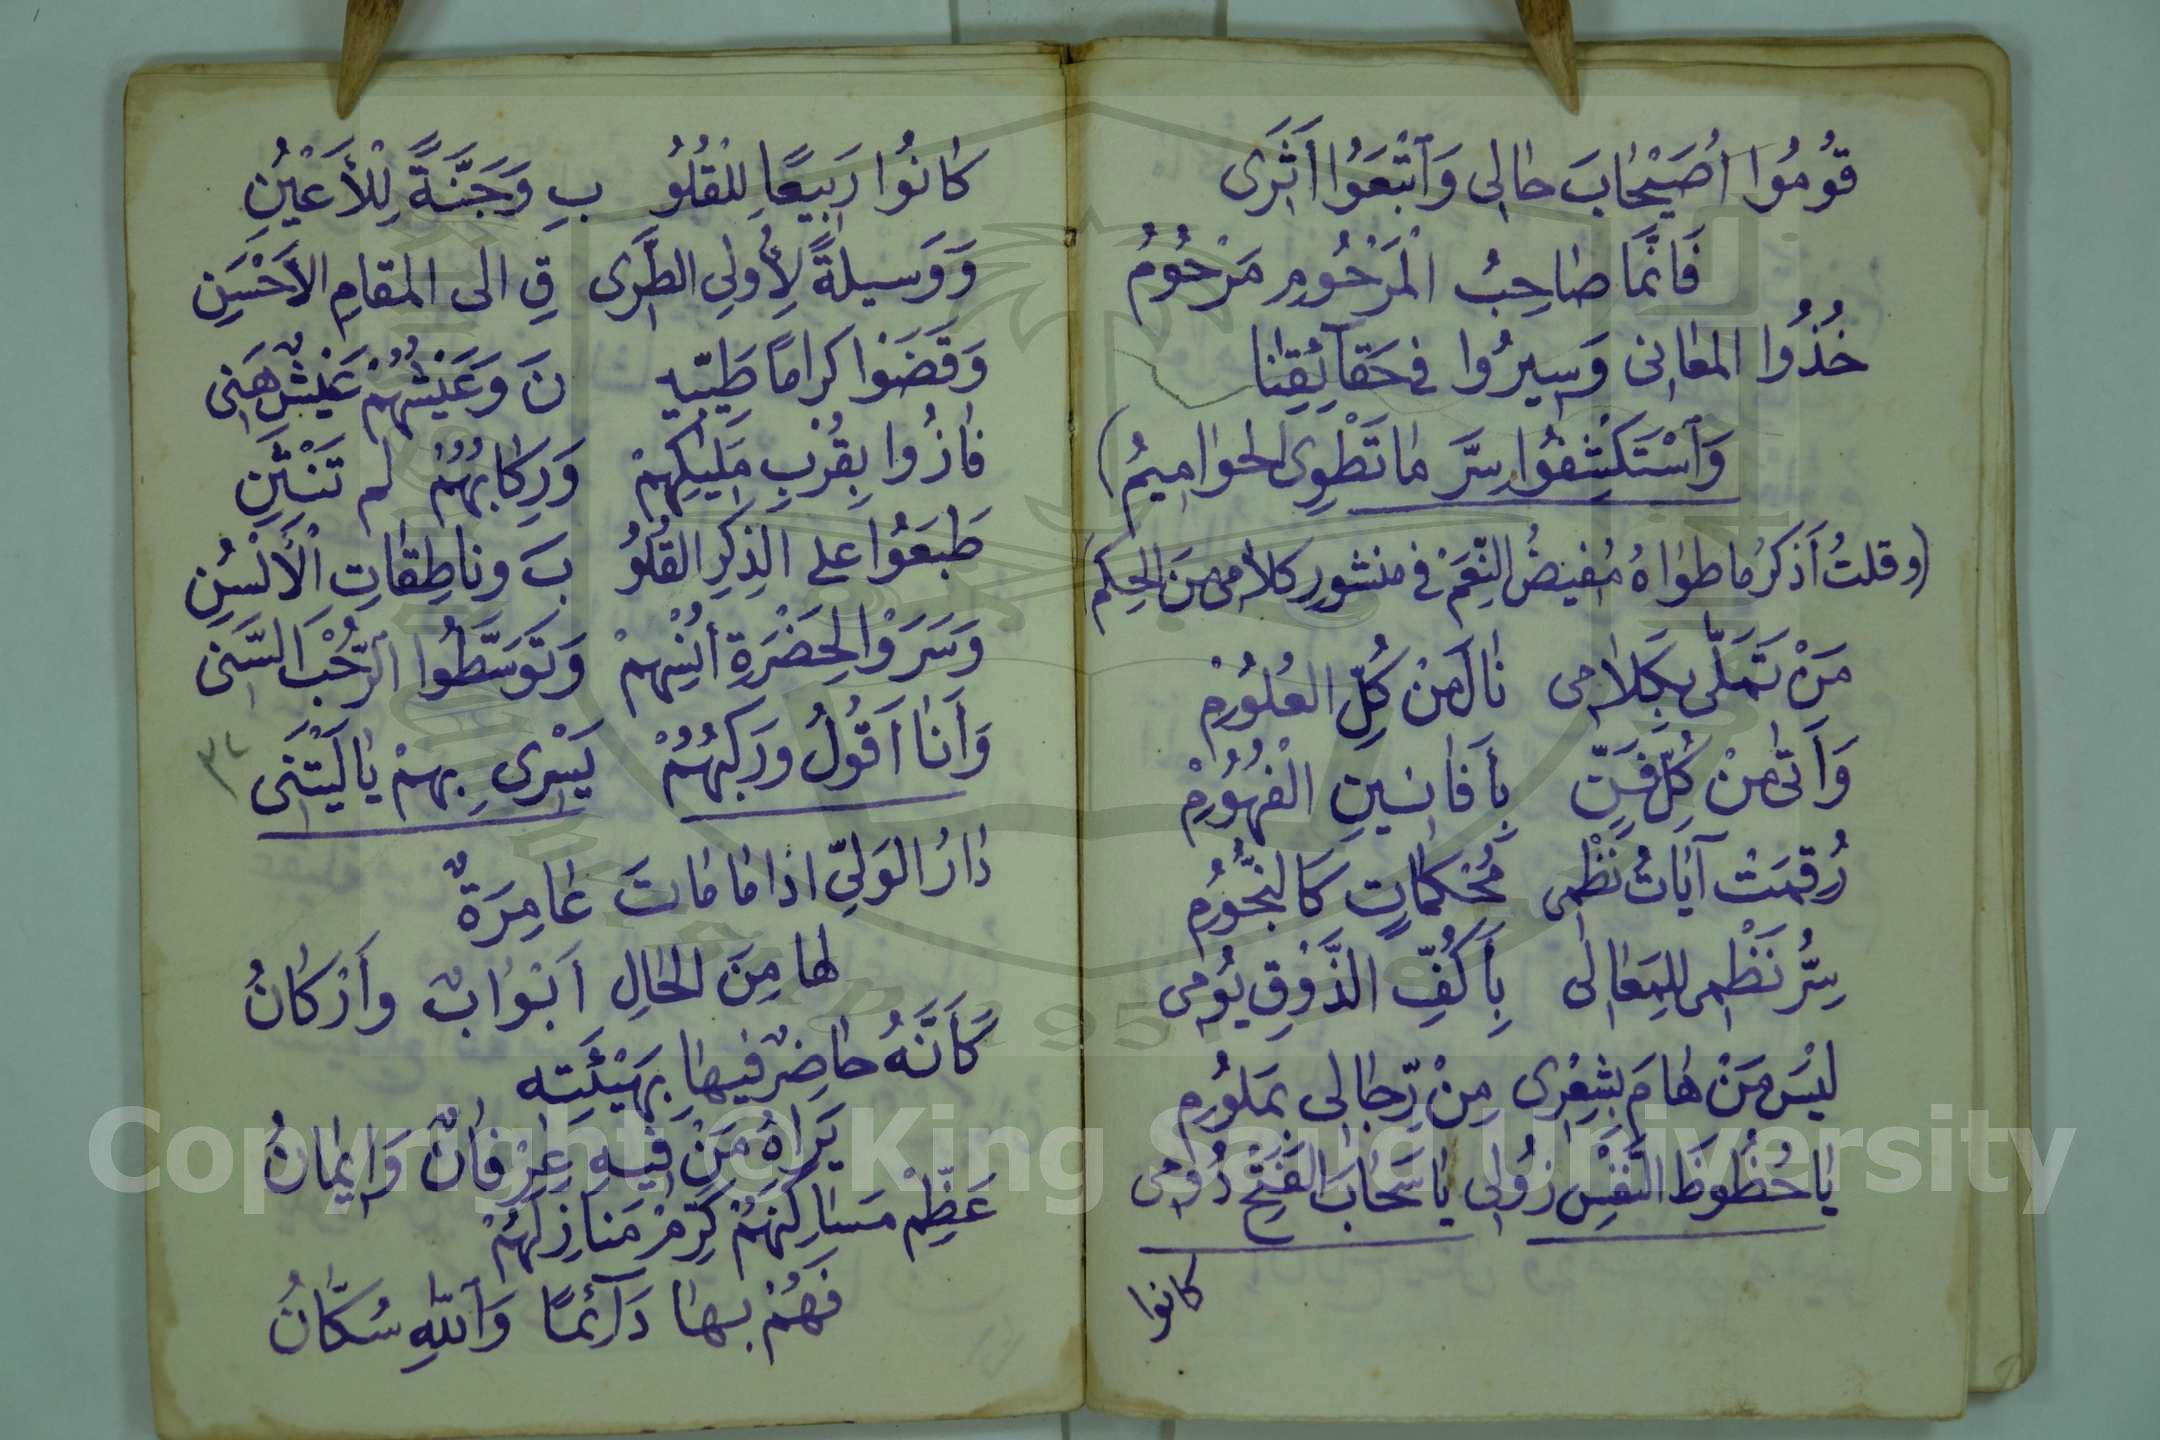 قُومُوا أُصَيْحَابَ حالِى وَٱتْبَعُوا أَثَرِى
فَانَّمَا صَاحِبُ الْمَرْحُومِ مَرْحُومُ
خُذُوا المعَانِى وَسِيرُوا فى حَقَآئِقِنَا
وَٱسْتَكْشِفُوا سِرَّ مَا تَطْوِى الحوَامِيمُ)
(وقلتُ أذكرُ ما طوَاهُ مُفيضُ النِّعَمْ فى منشورِ كلامى منَ الحِكَم)
مَنْ تَمَلَّى بِكَلَامِى نَالَ مَنْ كُلِّ العُلُومِ
وَأَتَى مِنْ كُلِّ فَنٍّ بِأَفَانينِ الْفُهُومِ
رُقِمَتْ آيَاتُ نَظْمِى مُحْكَمَاتٍ كَالنُّجُومِ
سِرُّ نَظْمِى لِلمَعَالِى بِأَكُفِّ الذَّوْقِ يُومِى
لَيْسَ مَنْ هَامَ بِشِعْرِى مِنْ رِّجَالِى بمَلُومِ
يَا حُظُوظَ النَّفْسِ زُولِى يَا سَحَابَ الفَتْحِ دُومِى
كانوا
كَانُوا رَبِيعًا لِلْقُلُو بِ وَجَنَّةً لِلْأَعْيُنِ
وَوَسيلةً لِأُولِي الطَّرَى قِ الى المقامِ الأَحْسَنِ
وَقَضَوْا كرامًا طَيِّبِي نَ وَعَيْشُهُمْ عَيْشٌ هَنِى
فَازُوا بِقُرْبِ مَلِيكِهِمْ وَرِكَابُهُمْ لم تَنْثَنِ
طَبَعُوا على الذِكِرِ القُلُو بَ وناطِقَاتِ الْأَلْسُنِ
وَسَرَوْا لِحَضْرَةِ أُنْسِهِمْ وَتَوَسَّطُوا الرَّحْبَ السَّنِى
وَأَنَا أَقُولُ وَرَكْبُهُمْ يَسْرِى بِهِمْ يَالَيْتَنِى
٣٨
دَارُ الوَلِيّ اذا مَا مَاتَ عَامِرَةٌ
لها مِنَ الحَالِ أَبْوَابٌ وأَرْكَانُ
كَأَنَّهُ حَاضِرٌ فيهَا بِهَيْئَتِه
يَرَاهُ مَنْ فيهِ عِرْفَانٌ وَإِيمَانُ
عَظِّمْ مَسَاكِنَهُمْ كَرِّمْ مَنَازِلَهُمْ
فَهُمْ بهَا دَآئمًا وَٱللهِ سُكَّانُ
Copyright © King Saud University